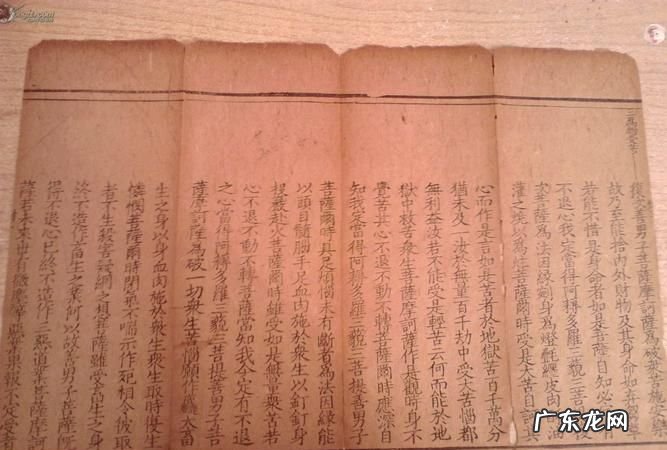 復次善男子菩薩摩訶薩為破衆生
故乃至能捨內外財物及其身命如在
若能不惜是身命者如是菩薩自知必有
不退心我定當得阿耨多羅三藐三菩提
次菩薩為法因緣剜身為燈氎纏皮肉酥油
灌之燒以為炷菩薩爾時受是大苦自訶其
心而作是言如是苦者於地獄苦百千萬分
猶未及一汝於無量百千劫中受大苦惱都
無利益汝若不能受是輕苦云何而能於地
獄中救苦衆生菩薩摩訶薩作是觀時身不
覺苦其心不退不動不轉菩薩爾時應深自
知我定當得阿耨多羅三藐三菩提善男子
菩薩爾時具足煩惱未有斷者為法因緣能
以頭目髓腦手足血肉施於衆生以釘釘身
投巖赴火菩薩爾時雖受如是無量衆苦若
心不退不動不轉菩薩當知我今定有不退
之心當得阿耨多羅三藐三菩提善男子菩
薩摩訶薩為破一切衆生苦惱願作麤大畜
生之身以身血肉施於衆生衆生取時復生
憐愍菩薩爾時閉氣不喘示作死相令彼取
者不生殺害疑網之想菩薩雖受畜生之身
終不造作畜生之業何以故善男子菩薩既
得不退心已終不造作三惡道業菩薩摩訶
薩若未來世有微塵等惡業果報不定受者
广东龙网